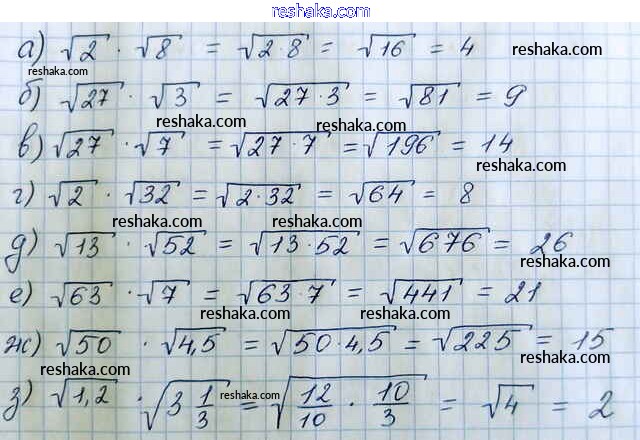 reshaka.com
а) √2 · √8 = √(2·8) = √16 = 4 reshaka.com
reshaka.com
б) √27 · √3 = √(27·3) = √81 = 9
reshaka.com reshaka.com
в) √27 · √7 = √(27·7) = √196 = 14
reshaka.com
г) √2 · √32 = √(2·32) = √64 = 8
reshaka.com reshaka.com
д) √13 · √52 = √(13·52) = √676 = 26
reshaka.com
е) √63 · √7 = √(63·7) = √441 = 21
reshaka.com reshaka.com
ж) √50 · √4,5 = √(50·4,5) = √225 = 15
reshaka.com reshaka.com
з) √1,2 · √(3 1/3) = √(12/10 · 10/3) = √4 = 2
reshaka.com